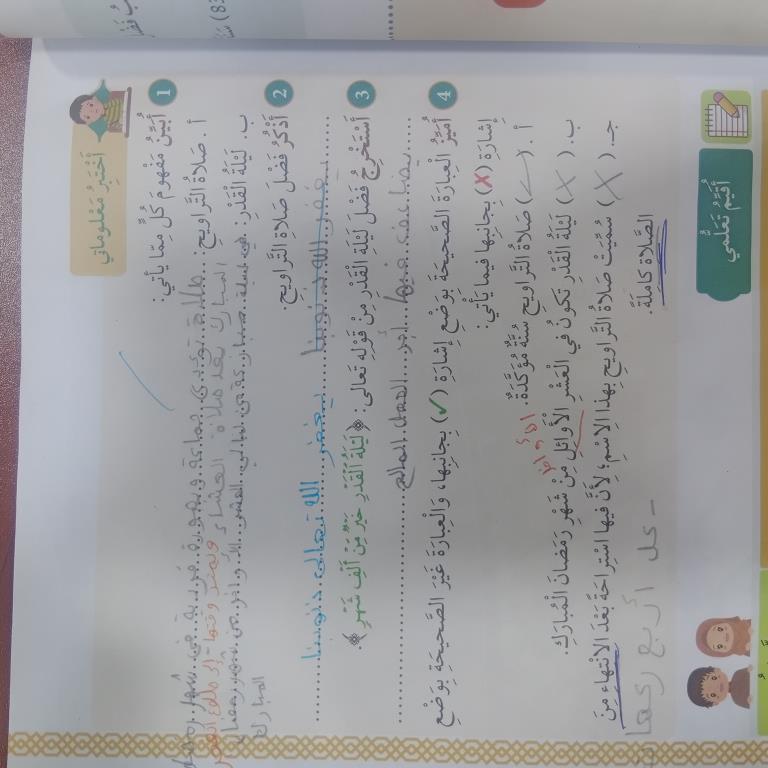 أَخْتَبِرُ مَعْلوماتي
1 أُبَيِّنُ مَفْهومَ كُلٍّ مِمّا يَأْتي:
أ . صَلاةُ التَّراويحِ: صلاة تؤدى جماعة وبصورة فردية في شهر رمضان
المبارك بعد صلاة العشاء ويمتد وقتها إلى طلوع الفجر
ب. لَيْلَةُ الْقَدْرِ: هي ليلة مباركة من ليالي العشر الأواخر من شهر رمضان
المبارك
2 أَذْكُرُ فَضْلَ صَلاةِ التَّراويحِ.
يغفر الله ذنوبنا يغفر الله تعالى ذنوبنا
3 أَسْتَخْرِجُ فَضْلَ لَيْلَةِ الْقَدْرِ مِنْ قَوْلِهِ تَعالى: ﴿لَيْلَةُ الْقَدْرِ خَيْرٌ مِّنْ أَلْفِ شَهْرٍ﴾.
يضاعف فيها أجر العمل الصالح
4 أُمَيِّزُ الْعِبارَةَ الصَّحيحَةَ بِوَضْعِ إِشارَةِ (✓) بِجانِبِها، وَالْعِبارَةَ غَيْرَ الصَّحيحَةِ بِوَضْعِ
إِشارَةِ (✗) بِجانِبِها فيما يَأْتي:
أ . (✓) صَلاةُ التَّراويحِ سُنَّةٌ مُؤَكَّدَةٌ.
ب. (✗) لَيْلَةُ الْقَدْرِ تَكونُ في الْعَشْرِ الْأَوائِلِ مِنْ شَهْرِ رَمَضانَ الْمُبارَكِ.
جـ. (✗) سُمِّيَتْ صَلاةُ التَّراويحِ بِهذا الِاسْمِ؛ لِأَنَّ فيها اسْتِراحَةً بَعْدَ الِانْتِهاءِ مِنَ
الصَّلاةِ كامِلَةً.
- كل أربع ركعات
أُقَيِّمُ تَعَلُّمي